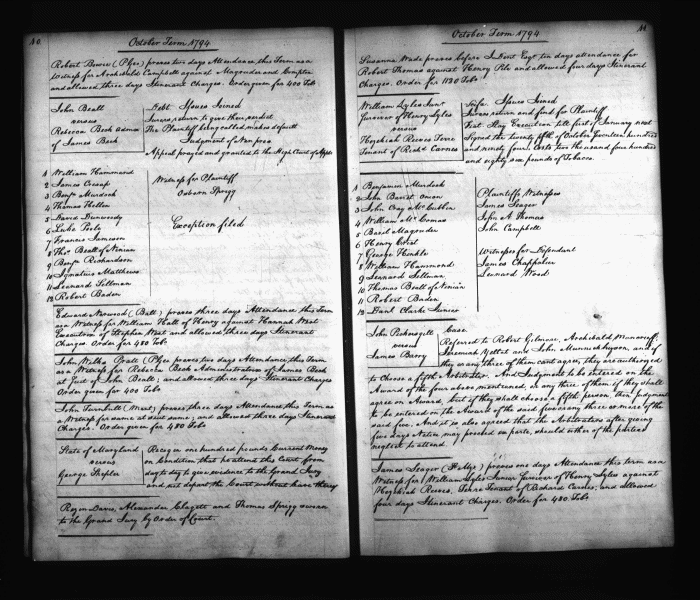 40.
October Term 1794
Robert Bowie (Pfee) proves two days Attendance, this Term as a
Witness for Archibald Campbell against Magruder and Compton
and allowed three days Itinerant Charges. Order given for 400 Tobo
John Beall
versus
Rebecca Beck Admx
of James Beck
Debt Issues Joined
Jurors return to give their verdict
The Plaintiff being called makes default
Judgment of Non pros
Appeal prayed and granted to the High Court of Appls
1 William Hammond
2 James Cresap
3 Benja Murdoch
4 Thomas Hollen
5 David Dunwoody
6 Luke Pooly
7 Francis Jameson
8 Thos Beall of Ninian
9 Benja Richardson
10 Ignatius Matthews
11 Leonard Sellman
12 Robert Baden
Witness for Plaintiff
Osborn Sprigg
Exception filed
Edward Norwood (Balt) proves three days Attendance this Term
as a Witness for William Hall of Henry against Hannah West
Executrix of Stephen West and allowed three days Itinerant
Charges. Order for 480 Tobo
John Welha Pratt (Pfee) proves two days Attendance this Term
as a Witness for Rebecca Beck Administratrix of James Beck
at Suit of John Beall; and allowed three days Itinerant Charges
Order given for 400 Tobo
John Turnbull (Mont) proves three days Attendance, this Term as
a Witness for same at suit same; and allowed three days Itinerant
Charges. Order given for 480 Tobo
State of Maryland
versus
George Shepler
Recog in one hundred pounds Current Money
on Condition that he attend this Court from
day to day to give evidence to the Grand Jury
and not depart the Court without leave thereof
Rezin Davis, Alexander Clagett and Thomas Sprigg sworn
to the Grand Jury by Order of Court.
41
October Term 1794
Susanna Wade proves before Esqr ten days attendance for
Robert Thomas against Henry and allowed four days Itinerant
Charges. Order for 1120 Tobo
William Lyles Junr
Survivor of Henry Lyles
versus
Hezekiah Reeves Terre
Tenant of Richd Carnes
Scifa Issues Joined
Jurors return and find for Plaintiff
Fiat Stay Execution till first of January next
Signed the twenty fifth of October Seventeen hundred
and ninety four. Costs two thousand four hundred
and eighty six pounds of Tobacco.
1 Benjamin Murdoch
2 John Barret Oman
3 John Cray McCubbin
4 William McComas
5 Basil Magruder
6 Henry Crist
7 George Hinkle
8 William Hammond
9 Leonard Sellman
10 Thomas Beall of Ninian
11 Robert Baden
12 Danl Clarke Junior
Plaintiffs Witnesses
James Seager
John A Thomas
John Campbell
Witnesses for Defendant
James Chappelier
Leonard Wood
John Pickrogill
versus
James Barry
Case
Referred to Robert Gilmore, Archibald Moncrieff
Jeremiah Yellot and John Munnickhuysen, and if
they or any three of them cant agree, they are authorized
to choose a fifth Arbitrator. And Judgment to be entered on the
Award of the four above mentioned, or any three of them if they shall
agree on Award, but if they shall choose a fifth person, then Judgment
to be entered on the Award of the said five or any three or more of the
said five. And it is also agreed that the Arbitrators after giving
five days Notice may proceed ex parte, should either of the parties
neglect to attend.
James Seager (Hodge) proves one days Attendance this term as a
Witness for William Lyles Junior Survivor of Henry Lyles against
Hezekiah Reeves, Terre Tenant of Richard Carnes, and allowed
four days Itinerant Charges. Order for 480 Tobo